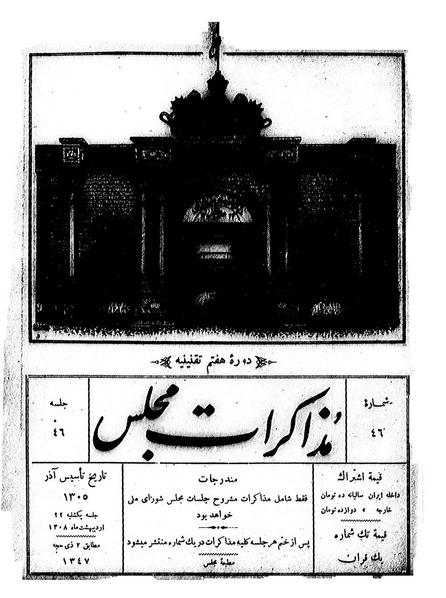 دورهٔ هفتم تقنینیه
شمارهٔ
۴۶
مذاکرات مجلس
جلسه
۴۶
قیمة اشتراک
داخله ایران سالیانه ده تومان
خارجه » دوازده تومان
قیمة تک شماره
یک قران
مندرجات
فقط شامل مذاکرات مشروح جلسات مجلس شورای ملی
خواهد بود
پس از ختم هر جلسه کلیه مذاکرات در یک شماره منتشر میشود
مطبعهٔ مجلس
تاریخ تأسیس آذر
۱۳۰۵
جلسه یکشنبه ۲۲
اردیبهشت ماه ۱۳۰۸
مطابق ۲ ذی حجه
۱۳۴۷